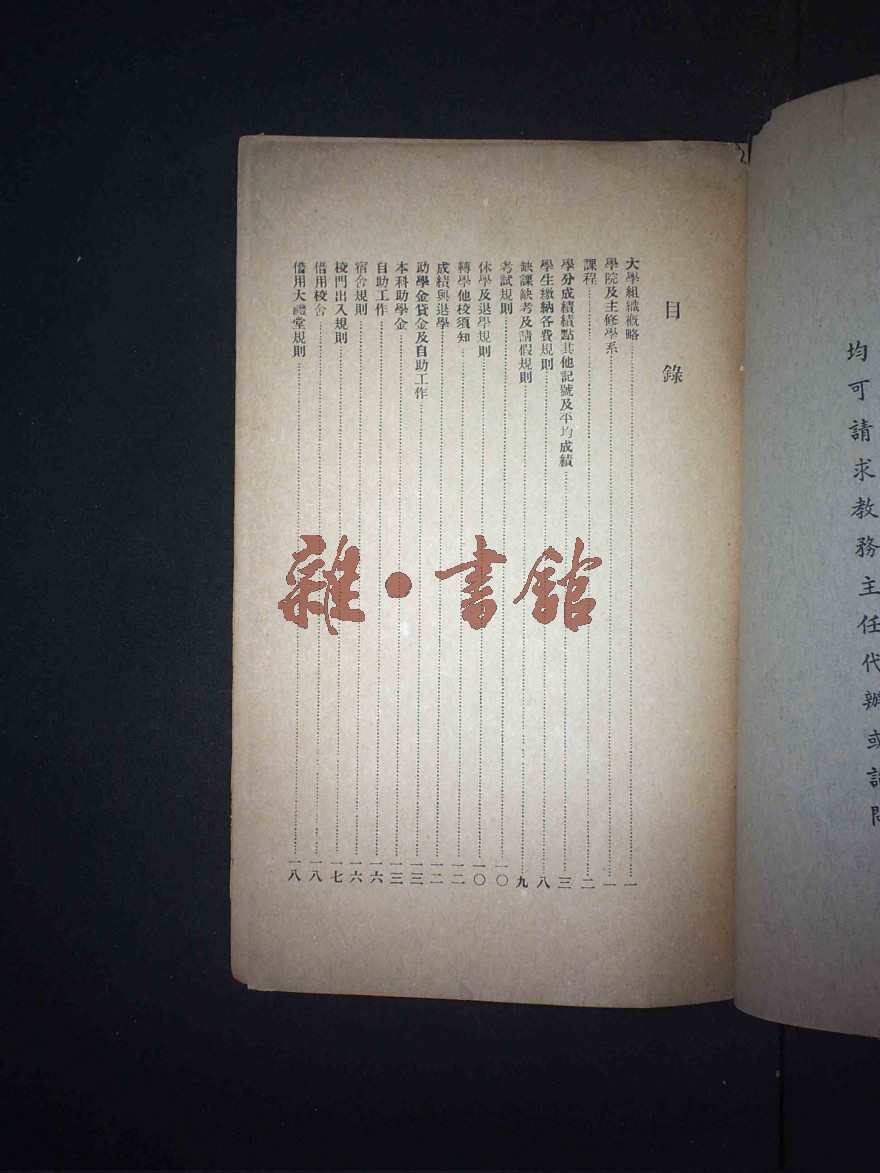 均可請求教務主任代辦或詢問
目錄
大學組織槪略…一
學院及主修學系…一
課程…二
學分成績績點其他記號及平均成績…三
學生繳納各費規則…八
缺課缺考及請假規則…九
考試規則…一〇
休學及退學規則…一〇
轉學他校須知…一二
成績與退學…一二
助學金貸金及自助工作…一三
本科助學金…一三
自助工作…一六
宿舍規則…一六
校門出入規則…一七
借用校舍…一八
借用大禮堂規則…一八
雜·書館